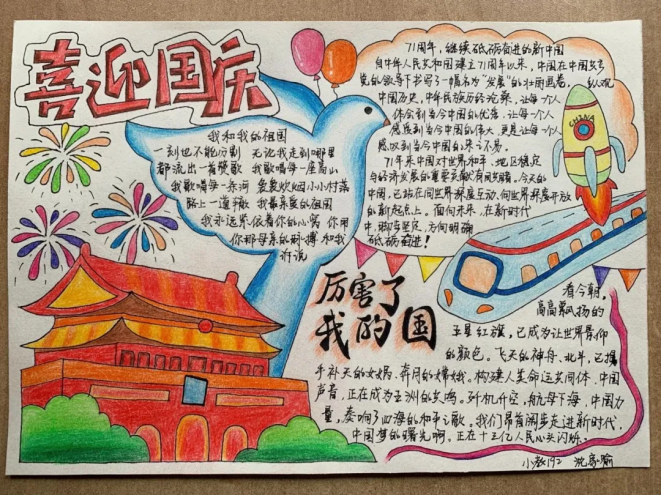 喜迎国庆
71周年，继续砥砺奋进的新中国
自中华人民共和国建立71周年以来，中国在中国共产
党的领导下书写了一幅名为“发展”的壮丽画卷。纵观
中国历史，中华民族历经沧桑，让每个人
体会到当今中国的优秀，让每一个人
感慨到当今中国的伟大，更是让每一个
感叹到当今中国的来之不易。
71年来中国对世界和平、地区稳定
与经济发展的重要贡献有目共睹，今天的
中国，已站在同世界深度互动、向世界深度开放
的新起点上。面向未来，在新时代
中，砥砺坚定，方向明确
砥砺奋进！
我和我的祖国
一刻也不能分割 无论我走到哪里
都流出一首赞歌 我歌唱每一座高山
我歌唱每一条河 袅袅炊烟小小村落
路上一道辙 我最亲爱的祖国
我永远紧依着你的心窝 你用
你那母亲的脉搏和我
诉说
CHINA
厉害了
我的国
看今朝，
高高飘扬的
五星红旗，已成为让世界景仰
的颜色。飞天的神舟、北斗，已携
手补天的女娲、奔月的嫦娥。构建人类命运共同体，中国
声音，正在成为五洲的共鸣。歼机升空，航母下海，中国力
量，奏响了四海的和平之歌。我们昂首阔步走进新时代，
中国梦的曙光啊，正在十三亿人民心头闪烁。
小教192